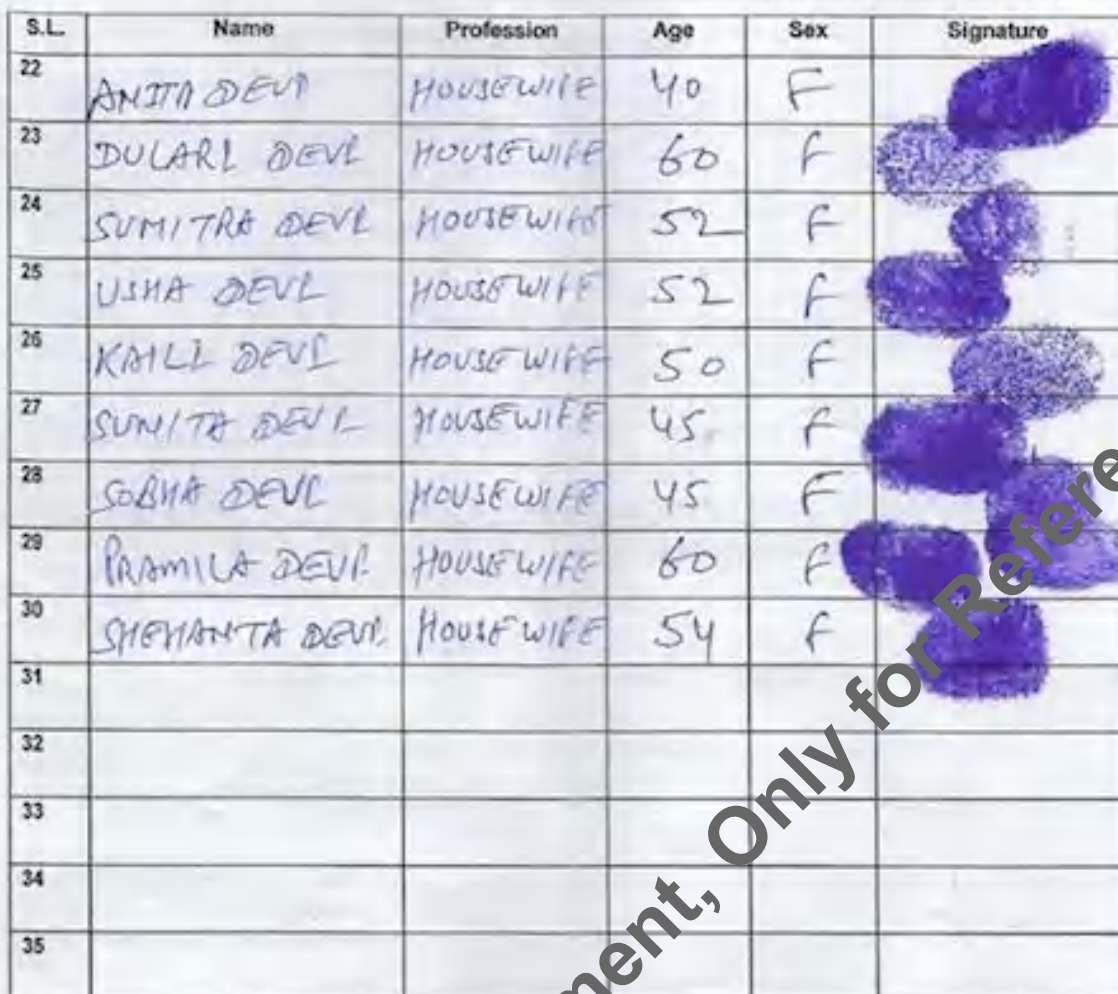 S.L. Name Profession Age Sex Signature
22 ANITA DEVI HOUSEWIFE 40 F
23 DULARI DEVI HOUSEWIFE 60 F
24 SUMITRA DEVI HOUSEWIFE 52 F
25 USHA DEVI HOUSEWIFE 52 F
26 KAILI DEVI HOUSEWIFE 50 F
27 SUNITA DEVI HOUSEWIFE 45 F
28 SOBHA DEVI HOUSEWIFE 45 F
29 PRAMILA DEVI HOUSEWIFE 60 F
30 DEVI HOUSEWIFE 54 F
31
32
33
34
35
Only for